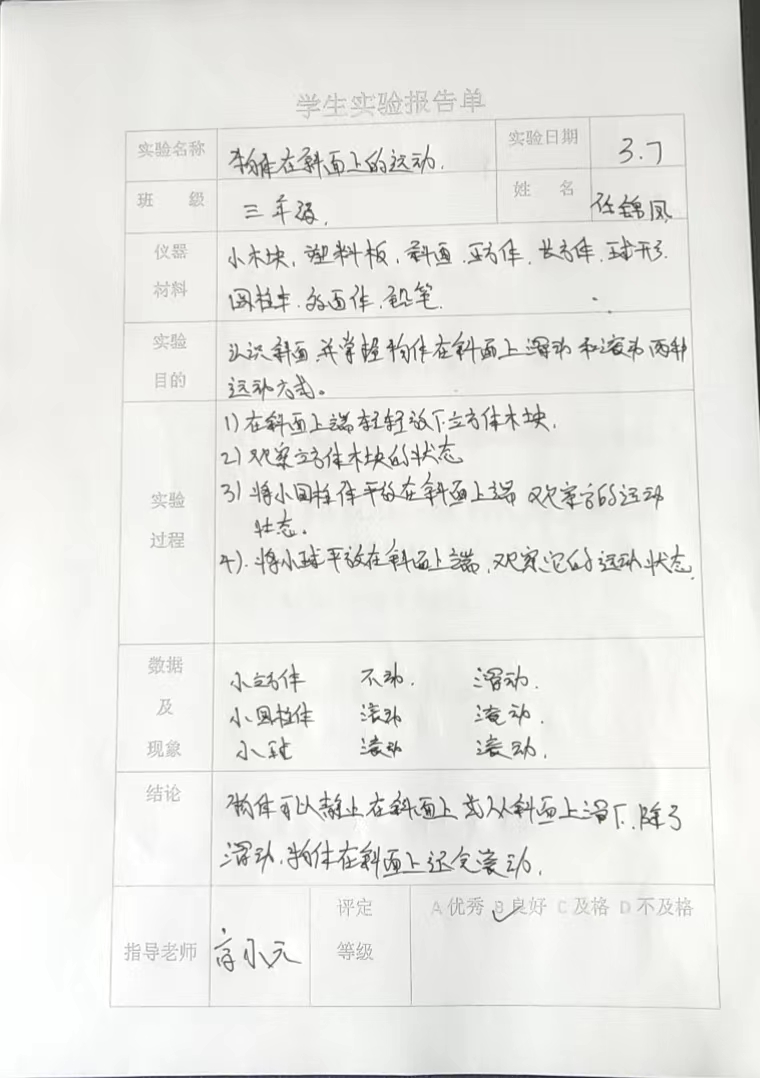 学生实验报告单
实验名称 物体在斜面上的运动. 实验日期 3.7
班 级 三年级. 姓 名 任锦凤
仪器 小木块, 塑料板, 斜面. 正方体. 长方体. 球形.
材料 圆柱体. 多面体. 铅笔.
实验 认识斜面并掌握物体在斜面上滑动和滚动两种
目的 运动方式。
1) 在斜面上端轻轻放下立方体木块.
2) 观察立方体木块的状态
实验 3) 将小圆柱体平放在斜面上端 观察它的运动
过程 状态。
4). 将小球平放在斜面上端, 观察它的运动状态.
数据 小立方体 不动. 滑动.
及 小圆柱体 滚动 滚动.
现象 小球 滚动 滚动.
结论 物体可以静止在斜面上 或从斜面上滑下. 除了
滑动, 物体在斜面上还会滚动.
评定 A 优秀 B 良好 C 及格 D 不及格
指导老师 小元 等级